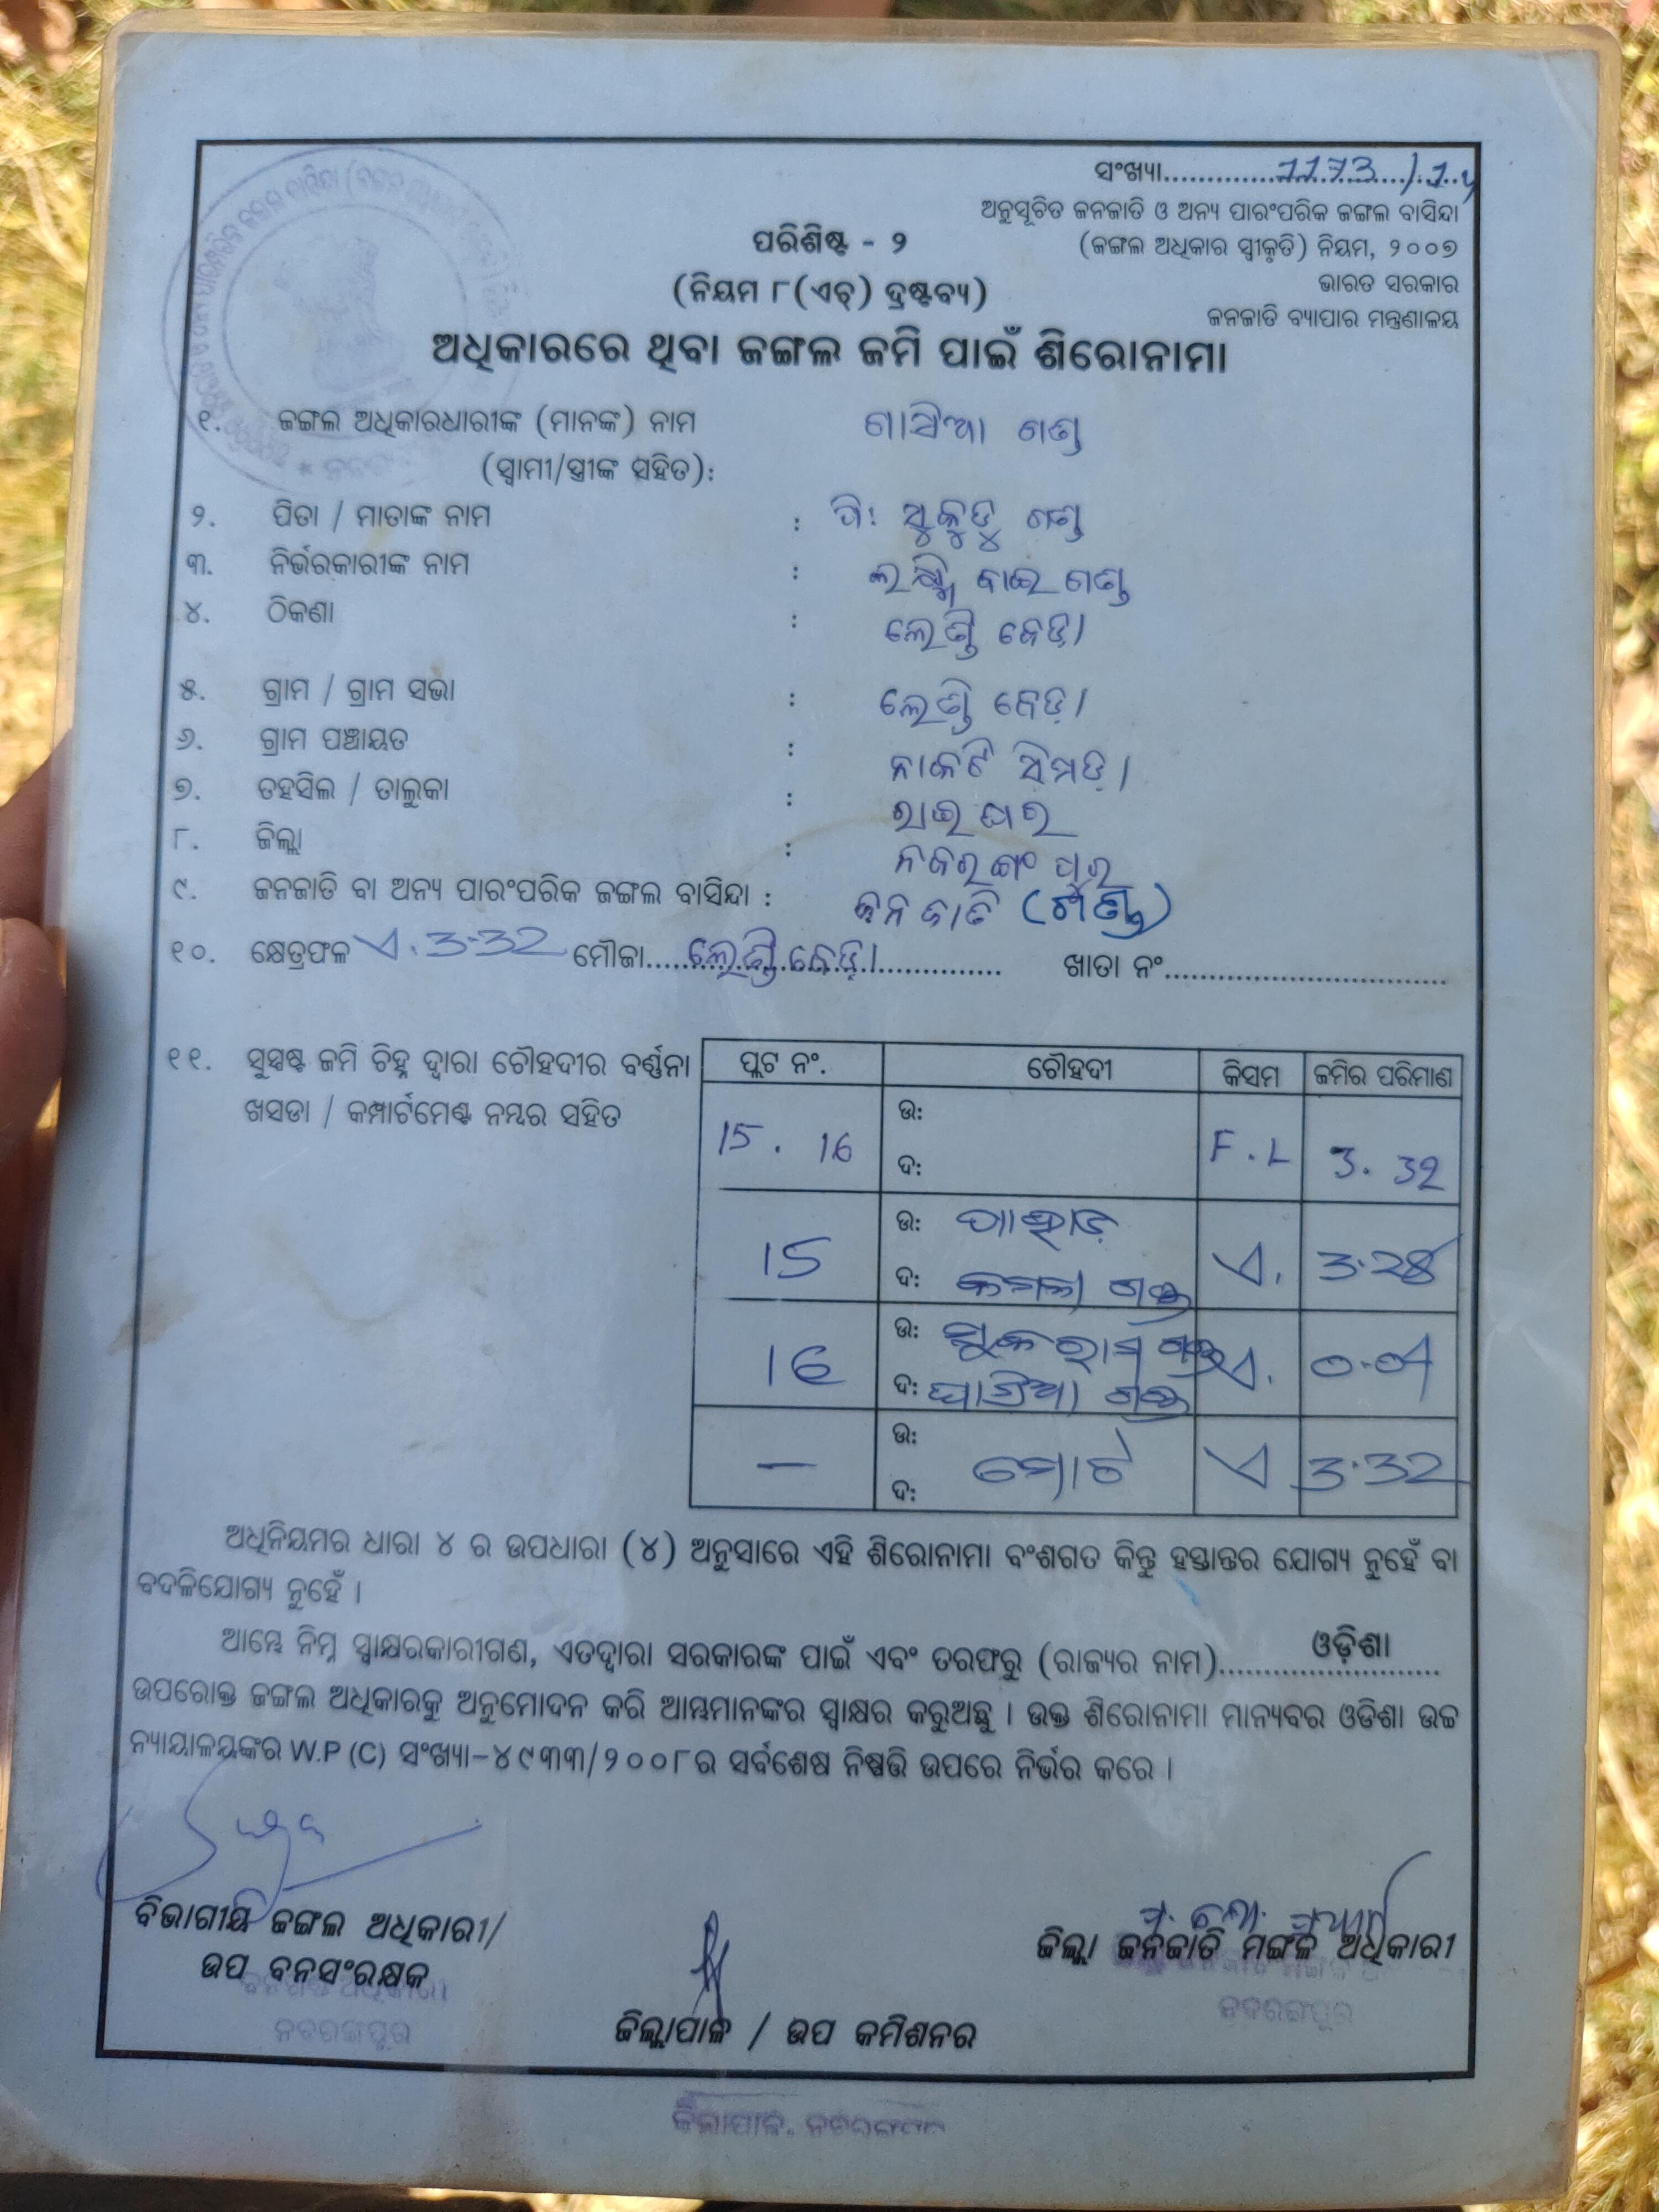 ସଂଖ୍ୟା 1173
ଅନୁସୂଚିତ ଜନଜାତି ଓ ଅନ୍ୟ ପାରଂପରିକ ଜଙ୍ଗଲ ବାସିନ୍ଦା
(ଜଙ୍ଗଲ ଅଧିକାର ସ୍ୱୀକୃତି) ନିୟମ, ୨୦୦୭
ଭାରତ ସରକାର
ଜନଜାତି ବ୍ୟାପାର ମନ୍ତ୍ରଣାଳୟ
ପରିଶିଷ୍ଟ - ୨
(ନିୟମ ୮(ଏଚ୍) ଦ୍ରଷ୍ଟବ୍ୟ)
ଅଧିକାରରେ ଥିବା ଜଙ୍ଗଲ ଜମି ପାଇଁ ଶିରୋନାମା
୧. ଜଙ୍ଗଲ ଅଧିକାରଧାରୀଙ୍କ (ମାନଙ୍କ) ନାମ ଗଣ୍ଡ
(ସ୍ୱାମୀ/ସ୍ତ୍ରୀଙ୍କ ସହିତ):
୨. ପିତା / ମାତାଙ୍କ ନାମ : ପି: ସୁକୁଡୁ ଗଣ୍ଡ
୩. ନିର୍ଭରକାରୀଙ୍କ ନାମ : ଲକ୍ଷ୍ମି ବାଇ ଗଣ୍ଡ
୪. ଠିକଣା : ଲେଣ୍ଡି ବେଡ଼ା
୫. ଗ୍ରାମ / ଗ୍ରାମ ସଭା : ଲେଣ୍ଡି ବେଡ଼ା
୬. ଗ୍ରାମ ପଞ୍ଚାୟତ : ନାକଟି ସିମଡ଼ା
୭. ତହସିଲ / ତାଲୁକା : ରାଇଘର
୮. ଜିଲ୍ଲା : ନବରଙ୍ଗପୁର
୯. ଜନଜାତି ବା ଅନ୍ୟ ପାରଂପରିକ ଜଙ୍ଗଲ ବାସିନ୍ଦା : ଜନଜାତି (ଗଣ୍ଡ)
୧୦. କ୍ଷେତ୍ରଫଳ ଏ. 3.32 ମୌଜା ଲେଣ୍ଡି ବେଡ଼ା ଖାତା ନଂ
୧୧. ସୁସ୍ପଷ୍ଟ ଜମି ଚିହ୍ନ ଦ୍ୱାରା ଚୌହଦୀର ବର୍ଣ୍ଣନା
ଖସଡା / କମ୍ପାର୍ଟମେଣ୍ଟ ନମ୍ବର ସହିତ
ପ୍ଲଟ ନଂ. ଚୌହଦୀ କିସମ ଜମିର ପରିମାଣ
15. 16 ଉ: ଦ: F.L 3.32
15 ଉ: ପାହାଡ଼ ଏ. 3.28
ଦ: କମଳା ଗଣ୍ଡ
16 ଉ: ସୁକରାମ ଗଣ୍ଡ ଏ. 0.04
ଦ: ଗଣ୍ଡ
— ଉ: ଦ: ମୋଟ ଏ 3.32
ଅଧିନିୟମର ଧାରା ୪ ର ଉପଧାରା (୪) ଅନୁସାରେ ଏହି ଶିରୋନାମା ବଂଶଗତ କିନ୍ତୁ ହସ୍ତାନ୍ତର ଯୋଗ୍ୟ ନୁହେଁ ବା
ବଦଳିଯୋଗ୍ୟ ନୁହେଁ ।
ଆମ୍ଭେ ନିମ୍ନ ସ୍ୱାକ୍ଷରକାରୀଗଣ, ଏତଦ୍ୱାରା ସରକାରଙ୍କ ପାଇଁ ଏବଂ ତରଫରୁ (ରାଜ୍ୟର ନାମ) ଓଡ଼ିଶା
ଉପରୋକ୍ତ ଜଙ୍ଗଲ ଅଧିକାରକୁ ଅନୁମୋଦନ କରି ଆମ୍ଭମାନଙ୍କର ସ୍ୱାକ୍ଷର କରୁଅଛୁ । ଉକ୍ତ ଶିରୋନାମା ମାନ୍ୟବର ଓଡିଶା ଉଚ୍ଚ
ନ୍ୟାୟାଳୟଙ୍କର W.P (C) ସଂଖ୍ୟା-୪୯୩୩/୨୦୦୮ର ସର୍ବଶେଷ ନିଷ୍ପତ୍ତି ଉପରେ ନିର୍ଭର କରେ ।
ବିଭାଗୀୟ ଜଙ୍ଗଲ ଅଧିକାରୀ/
ଉପ ବନସଂରକ୍ଷକ
ନବରଙ୍ଗପୁର
ଜିଲ୍ଲା ଜନଜାତି ମଙ୍ଗଳ ଅଧିକାରୀ
ନବରଙ୍ଗପୁର
ଜିଲ୍ଲାପାଳ / ଉପ କମିଶନର
ଜିଲ୍ଲାପାଳ, ନବରଙ୍ଗପୁର